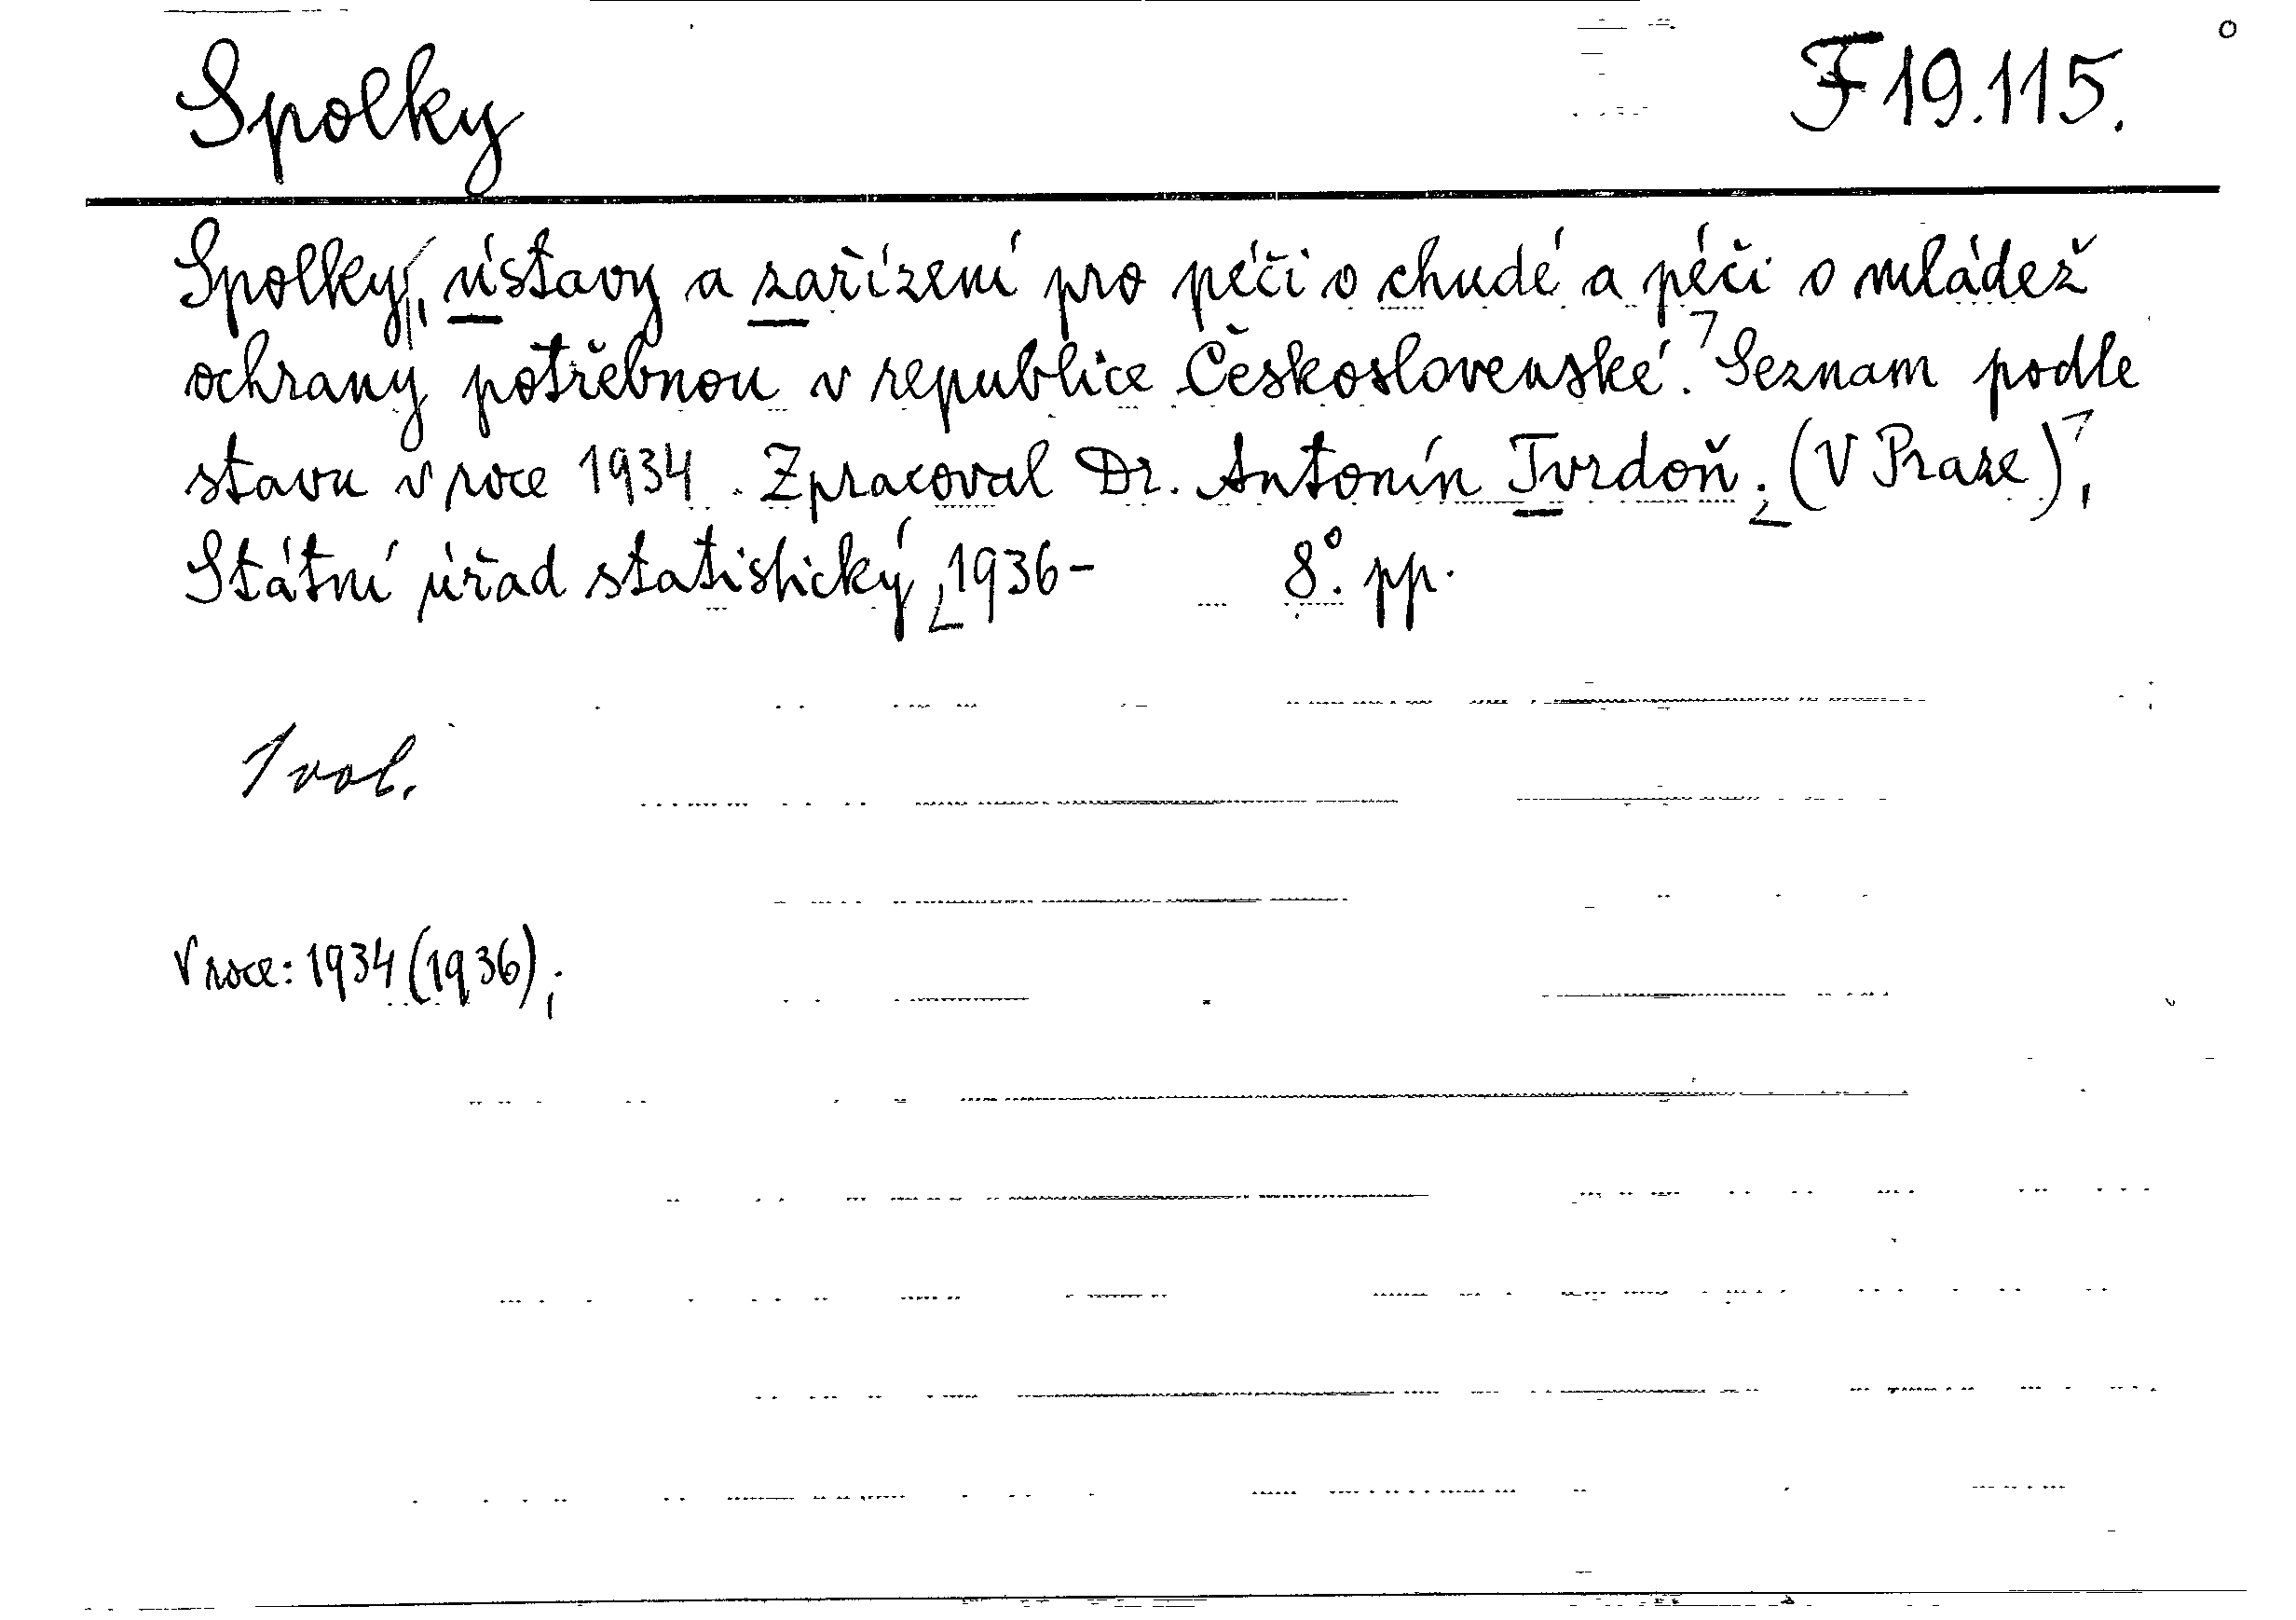 Spolky F 19.115.
Spolky, ústavy a zařízení pro péči o chudé a péči o mládež
ochrany potřebnou v republice Československé. Seznam podle
stavu v roce 1934. Zpracoval Dr. Antonín Tvrdoň. (V Praze),
Státní úřad statistický, 1936- 8°. pp.
1 vol.
V roce: 1934 (1936);